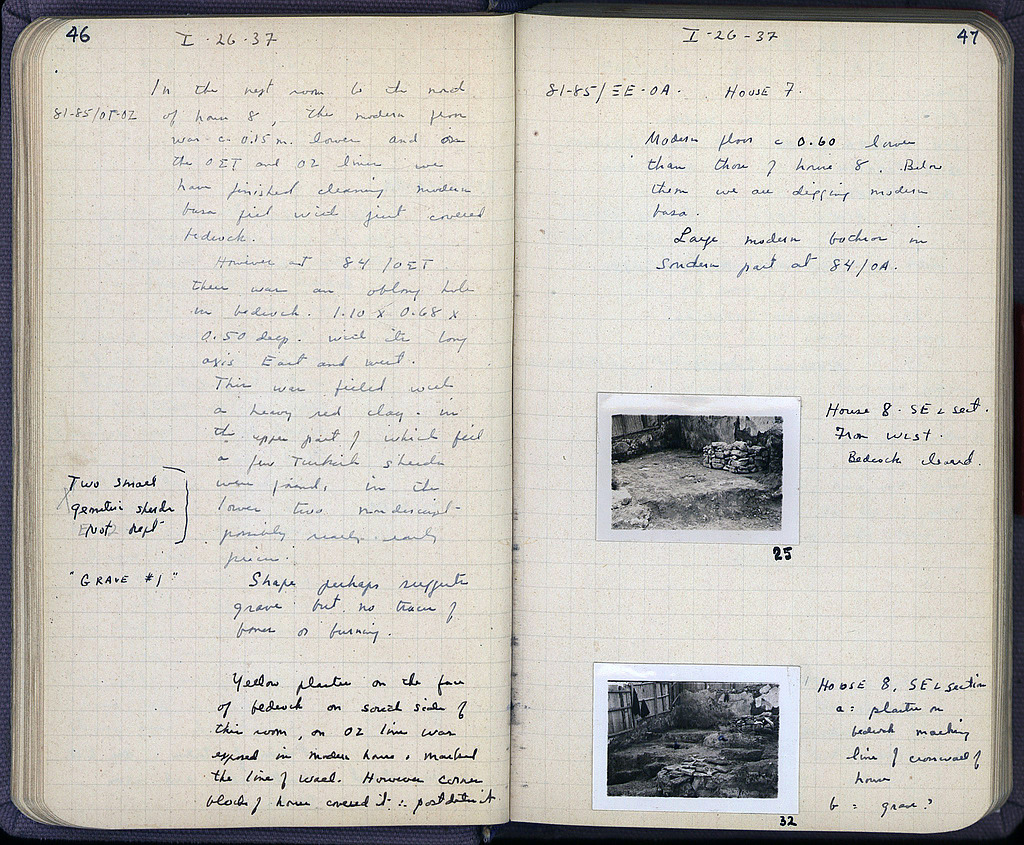 46
I-26-37
In the next room to the north
81-85/ΟΓ-ΟΖ
of house 8, the modern floor
was c 0.15 m. lower and on
the ΟΣΤ and ΟΖ lines we
have finished cleaning modern
basa fill which just covered
bedrock.
However at 84/ΟΣΤ
there was an oblong hole
in bedrock. 1.10 x 0.68 x
0.50 deep. with its long
axis East and west.
This was filled with
a heavy red clay. in
the upper part of which fill
a few Turkish sherds
were found, in the
lower two nondescript
possibly really early
pieces.
Two small
geometric sherds
Not kept
"GRAVE #1"
Shape perhaps suggests
grave but no traces of
bones or burning.
Yellow plaster on the face
of bedrock on south side of
this room, on ΟΖ line was
exposed in modern house, & marked
the line of wall. However corner
block of house covered it ∴ postdates it.
47
I-26-37
81-85/ΞΕ-ΟΑ. HOUSE 7.
Modern floor c 0.60 lower
than those of house 8. Below
them we are digging modern
basa.
Large modern bothros in
southern part at 84/ΟΑ.
House 8. SE sect.
From west.
Bedrock cleared.
25
HOUSE 8, SE section
a: plaster on
bedrock marking
line of crosswall of
house
b = grave?
32